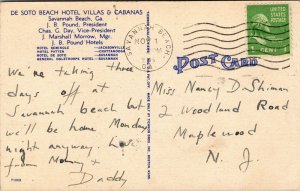 DE SOTO BEACH HOTEL VILLAS & CABANAS
Savannah Beach, Ga.
J. B. Pound, President
Chas. G. Day, Vice-President
J. Marshall Morrow, Mgr.
J. B. Pound Hotels
HOTEL SEMINOLE JACKSONVILLE
HOTEL PATTEN CHATTANOOGA
HOTEL DE SOTO SAVANNAH
GENERAL OGLETHORPE HOTEL SAVANNAH
SAVANNAH
UNITED STATES
POSTAGE
1 CENT 1
POST CARD
We're taking three
days off at
Savannah beach but
will be home Monday
night anyway. Love
from Mommy +
Daddy
Miss Nancy D. Shiman
2 Woodland Road
Maplewood
N. J.